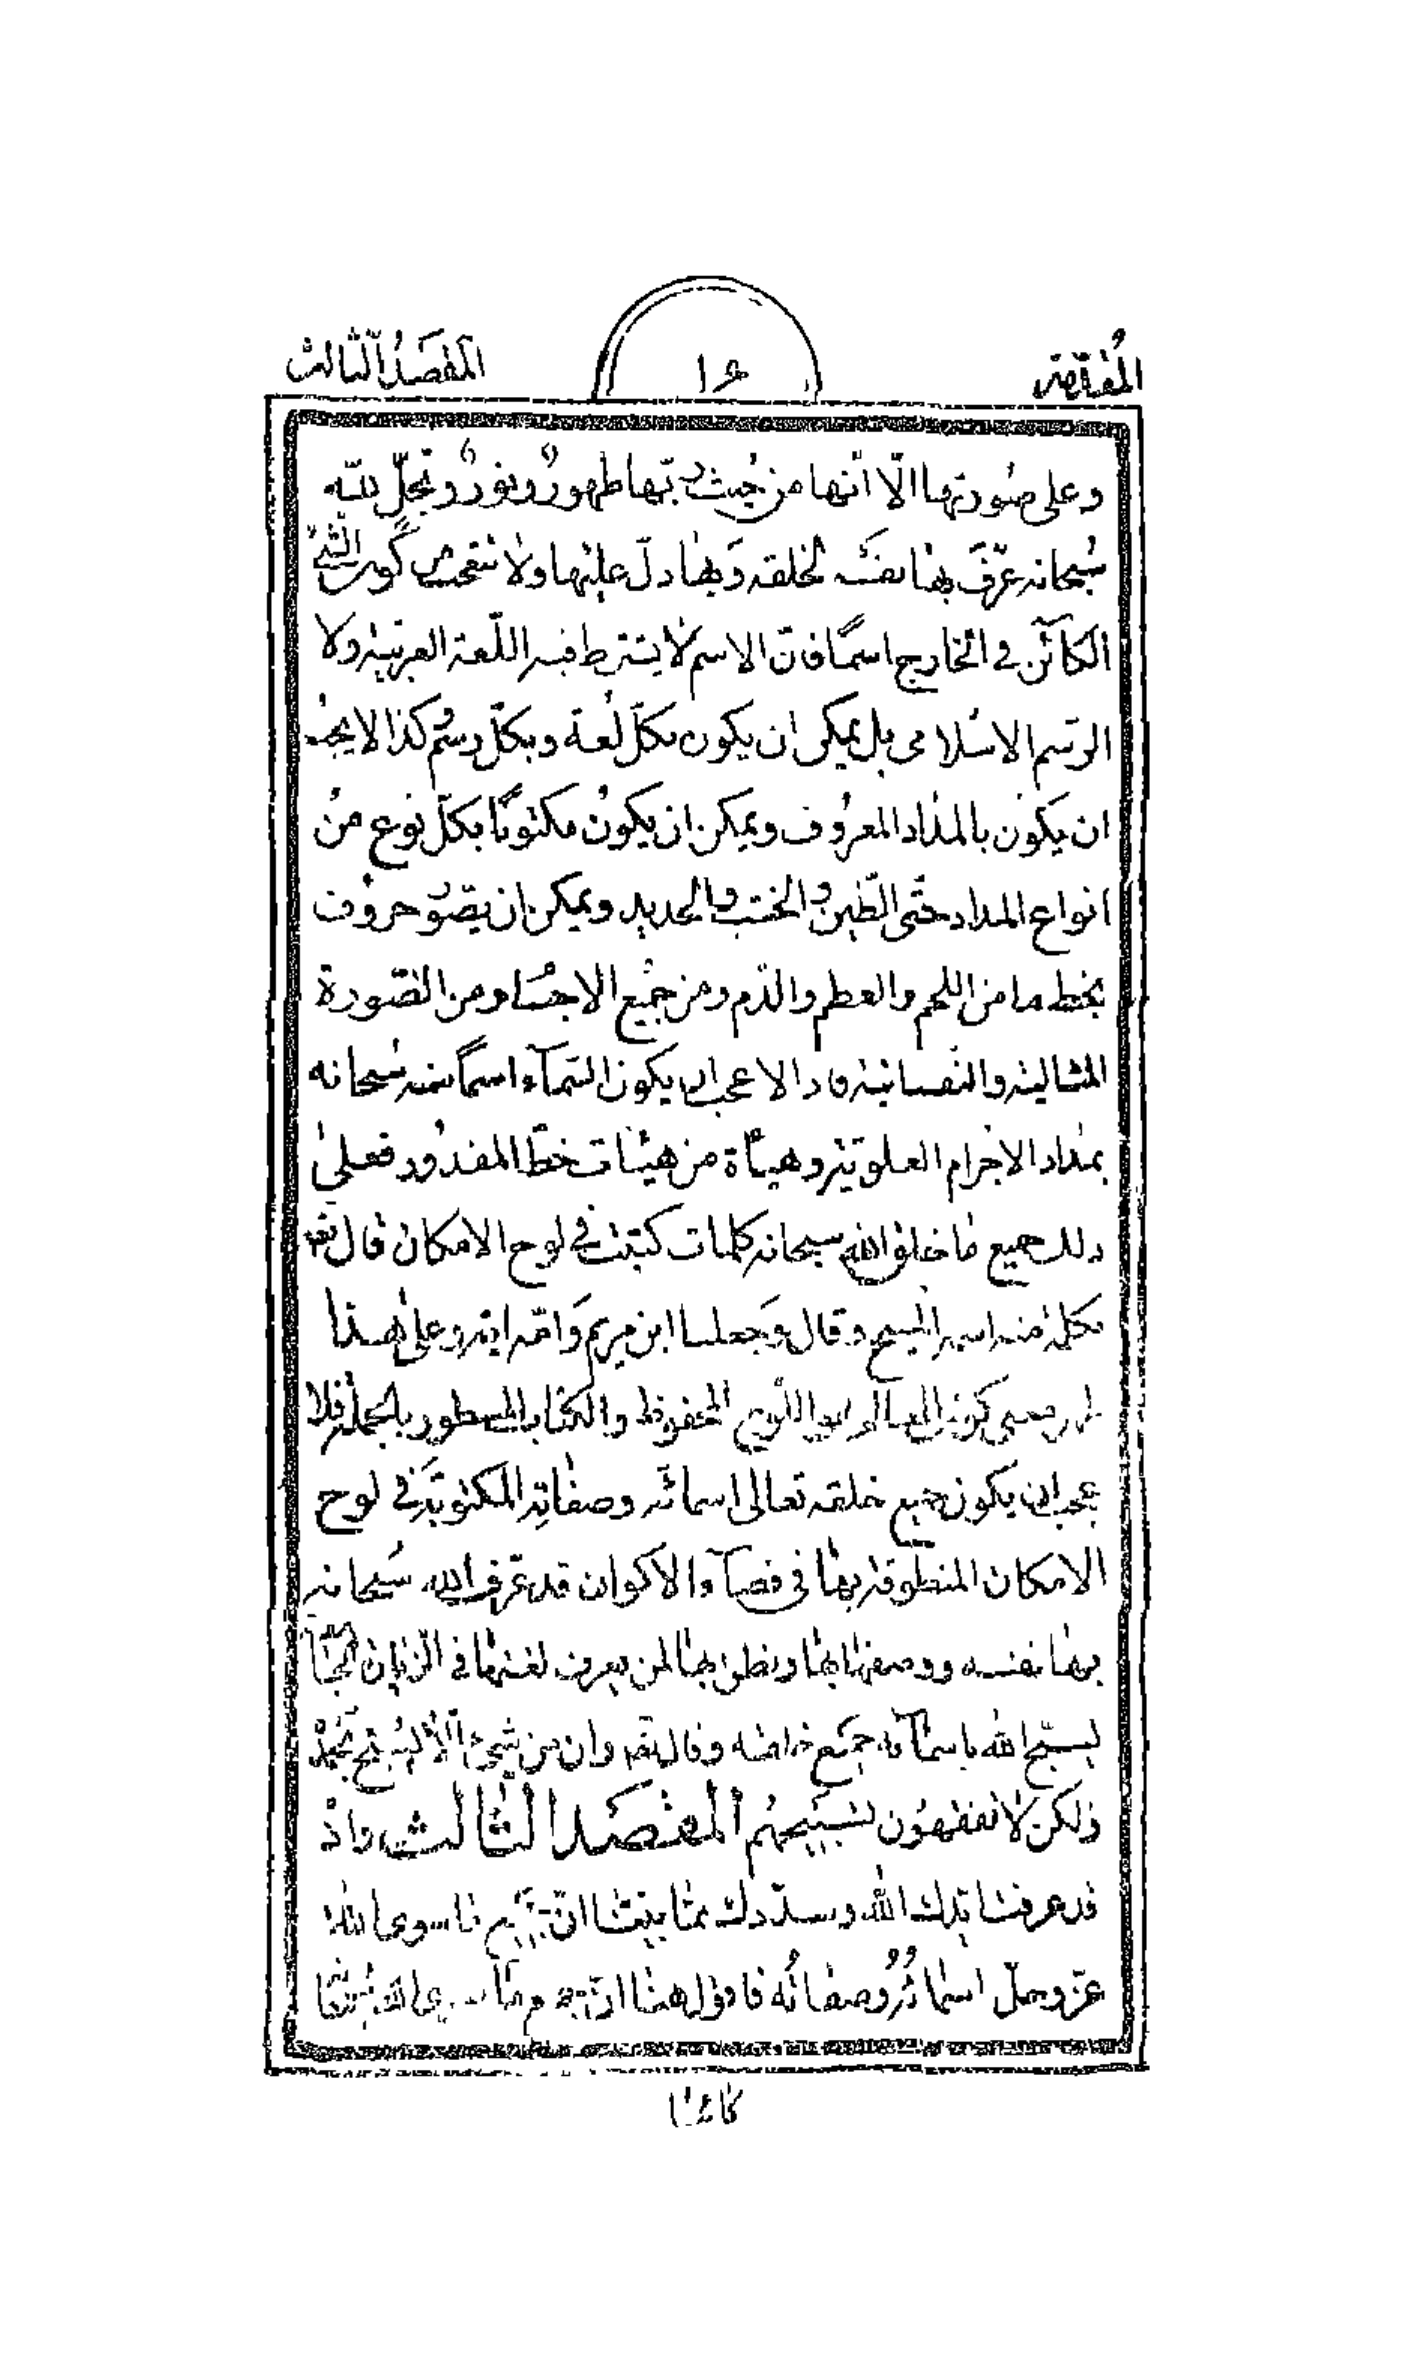 المقدمة
۱۶
المقصد الثالث
وعلى صورتها الّا انّها من حيث ربّها ظهور ونور وتجلّ للّه
سبحانه عرّف بها نفسه لخلقه وبها دلّ عليها ولا تتعجب من كون الشئ
الكائن في الخارج اسمًا فانّ الاسم لا يشترط فيه اللّغة العربيّة ولا
الرّسم الاسلامى بل يمكن ان يكون بكلّ لغة وبكلّ رسم كذا لا يجب
ان يكون بالمداد المعروف ويمكن ان يكون مكتوبًا بكلّ نوع من
انواع المداد حتّى الطّين والخشب والحديد ويمكن ان يصوّر حروف
بخط ما من اللحم والعظم والدّم ومن جميع الاجساد ومن الصّورة
المثالية والنّفسانية فاذا لا عجب ان يكون السّمآء اسمًا منه سبحانه
بمداد الاجرام العلويّة وهيأة من هيئات خطّ المقدور فعلى
ذلك جميع ما خلق الله سبحانه كلمات كتبت في لوح الامكان قال تعه
بكلمة منه اسمه المسيح وقال وجعلنا ابن مريم وامّه اية وعلى هذا
ظهر معنى كون العالم هو اللّوح المحفوظ والكتاب المسطور بالجملة فلا
عجب ان يكون جميع خلقه تعالى اسمائه وصفاته المكتوبة في لوح
الامكان المنطوقة بها في فضآء الاكوان قد عرّف الله سبحانه
بها نفسه ووصفها بها ونطق بها لمن يعرف لغتها في الزيارة
يسبّح الله باسمآئه جميع خلقه وقال تعه وان من شئ الّا يسبّح بحمده
ولكن لا تفقهون تسبيحهم المقصد الثالث واذ
قد عرفت ايّدك الله وسدّدك بما بيّنّا انّ جميع ما سوى الله
عزّ وجلّ اسمائه وصفاته فاقول هنا انّ جميع ما سوى الله
كائنا